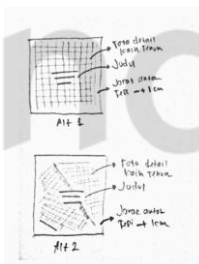 Foto detail
kain tenun
Judul
Jarak antar
Tepi → 1 cm
Alt 1
Foto detail
kain tenun
Judul
Jarak antar
Tepi → 1 cm
Alt 2